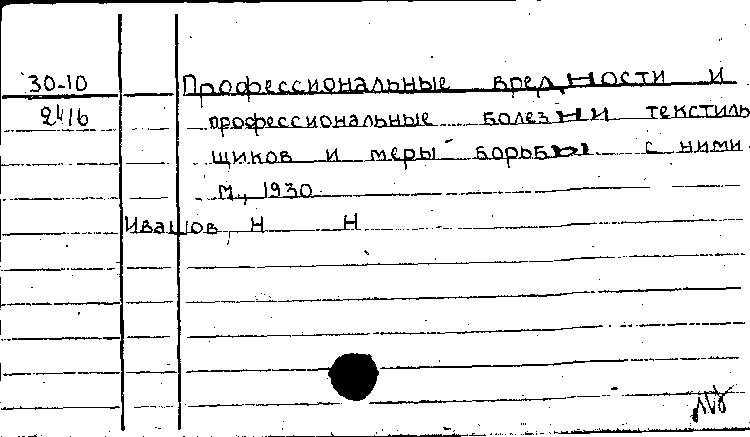 30-10 Профессиональные вредности и
2416 профессиональные болезни текстиль
щиков и меры борьбы с ними
М., 1930
Н Н